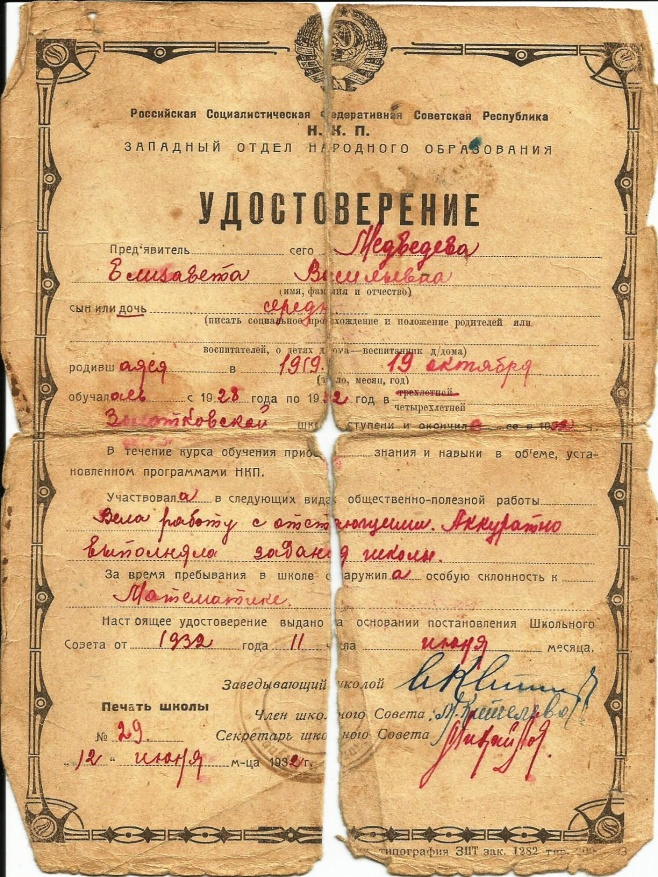 Российская Социалистическая Федеративная Советская Республика
Н. К. П.
ЗАПАДНЫЙ ОТДЕЛ НАРОДНОГО ОБРАЗОВАНИЯ
УДОСТОВЕРЕНИЕ
Пред'явитель сего Медведева
Елизавета Васильевна
(имя, фамилия и отчество)
сын или дочь средн
(писать социальное происхождение и положение родителей или
воспитателей, о детях д/дома—воспитанник д/дома)
родившаяся в 1919. 19 октября
(число, месяц, год)
обучалась с 1928 года по 1932 год в трехлетней
четырехлетней
школе ступени и окончила ее в 1932 г.
В течение курса обучения приобрела знания и навыки в об'еме, уста-
новленном программами НКП.
Участвовала в следующих видах общественно-полезной работы
Вела работу с отстающими. Аккуратно
выполняла задания школы.
За время пребывания в школе обнаружила особую склонность к
Математике.
Настоящее удостоверение выдано на основании постановления Школьного
Совета от 1932 года 11 числа июня месяца.
Заведывающий школой
Печать школы
Член школьного Совета
№ 29.
Секретарь школьного Совета
„12" июня м-ца 1932 г.
типография ЗПТ зак. 1282 тир.